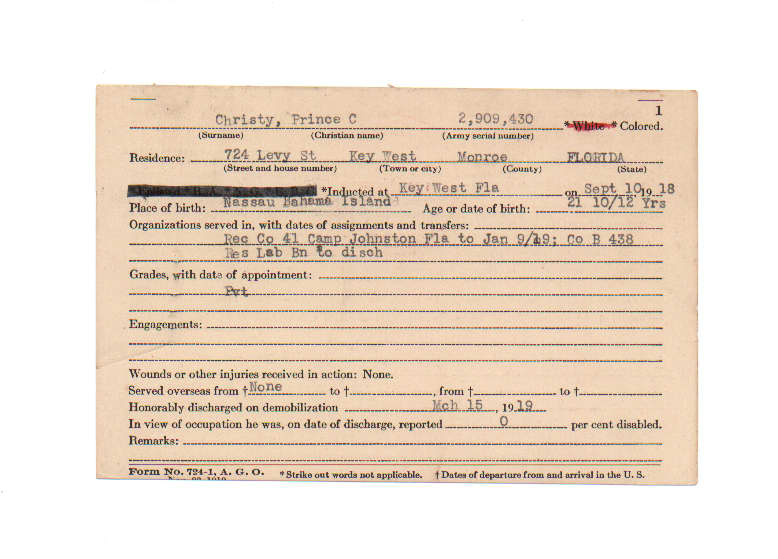 1
Christy, Prince C 2,909,430 * White * Colored.
(Surname) (Christian name) (Army serial number)
Residence: 724 Levy St Key West Monroe FLORIDA
(Street and house number) (Town or city) (County) (State)
*Inducted at Key West Fla on Sept 10, 19 18
Place of birth: Nassau Bahama Island Age or date of birth: 21 10/12 Yrs
Organizations served in, with dates of assignments and transfers:
Rec Co 41 Camp Johnston Fla to Jan 9/19; Co B 438
Res Lab Bn to disch
Grades, with date of appointment:
Pvt
Engagements:
Wounds or other injuries received in action: None.
Served overseas from † None to †, from † to †
Honorably discharged on demobilization Mch 15, 19 19
In view of occupation he was, on date of discharge, reported 0 per cent disabled.
Remarks:
Form No. 724-1, A. G. O. * Strike out words not applicable. † Dates of departure from and arrival in the U. S.